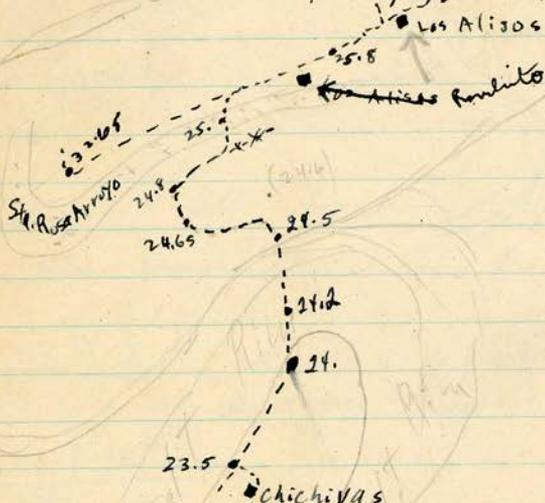 Los Alisos
25.8
Los Alisos Ranchito
32.65
25.
Sta. Rosa Arroyo
24.8
(24.6)
24.65
24.5
24.2
Rim
24.
Rim
23.5
Chichivas